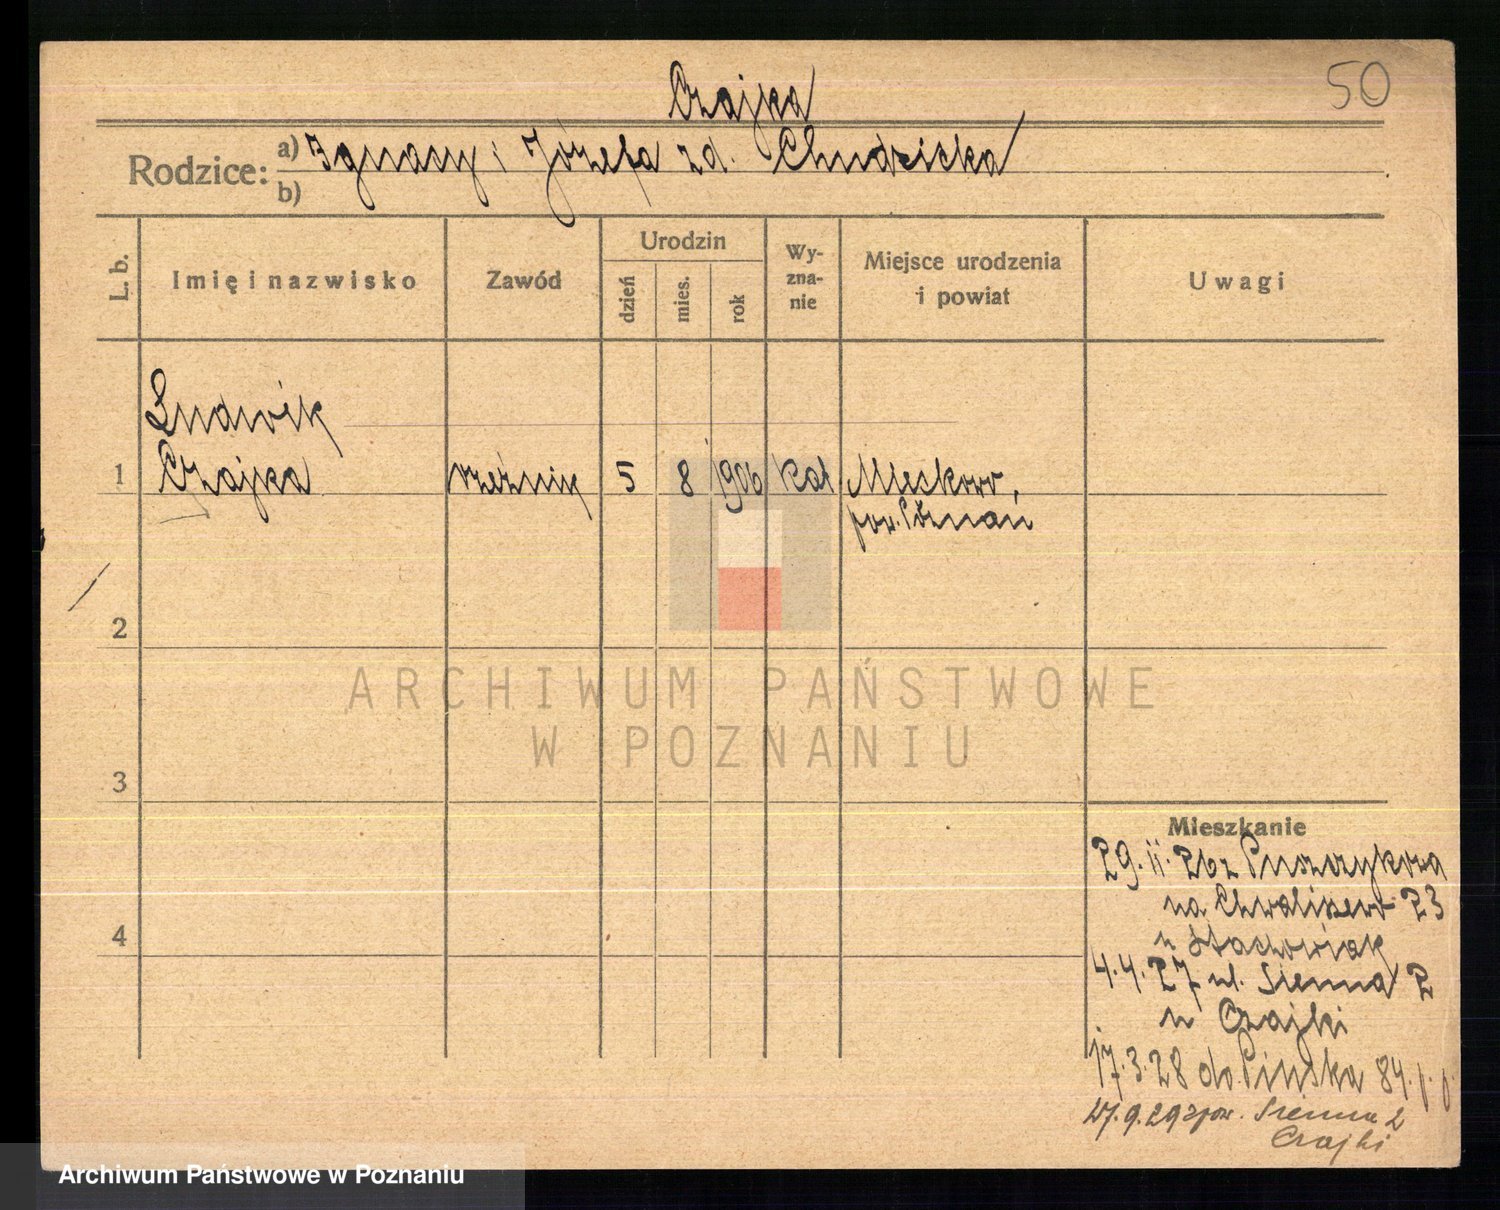 50
Czajka
Rodzice: a) Ignacy i Józefa zd. Chudzicka
b)
L. b. Imię i nazwisko Zawód Urodzin dzień mies. rok Wy-zna-nie Miejsce urodzenia i powiat Uwagi
Ludwik
1 Czajka rzeźnik 5 8 1906 kat
pow. Poznań
2
ARCHIWUM PAŃSTWOWE
W POZNANIU
3
Mieszkanie
29.11.26 z Puszczykowa
na Chwaliszewo 23
4
u Stachowiak
4.4.27 ul. Sienna 2
u Czajki
17.3.28 do Pińska 84.p.p.
27.9.29 z pow. Sienna 2
Czajki
Archiwum Państwowe w Poznaniu